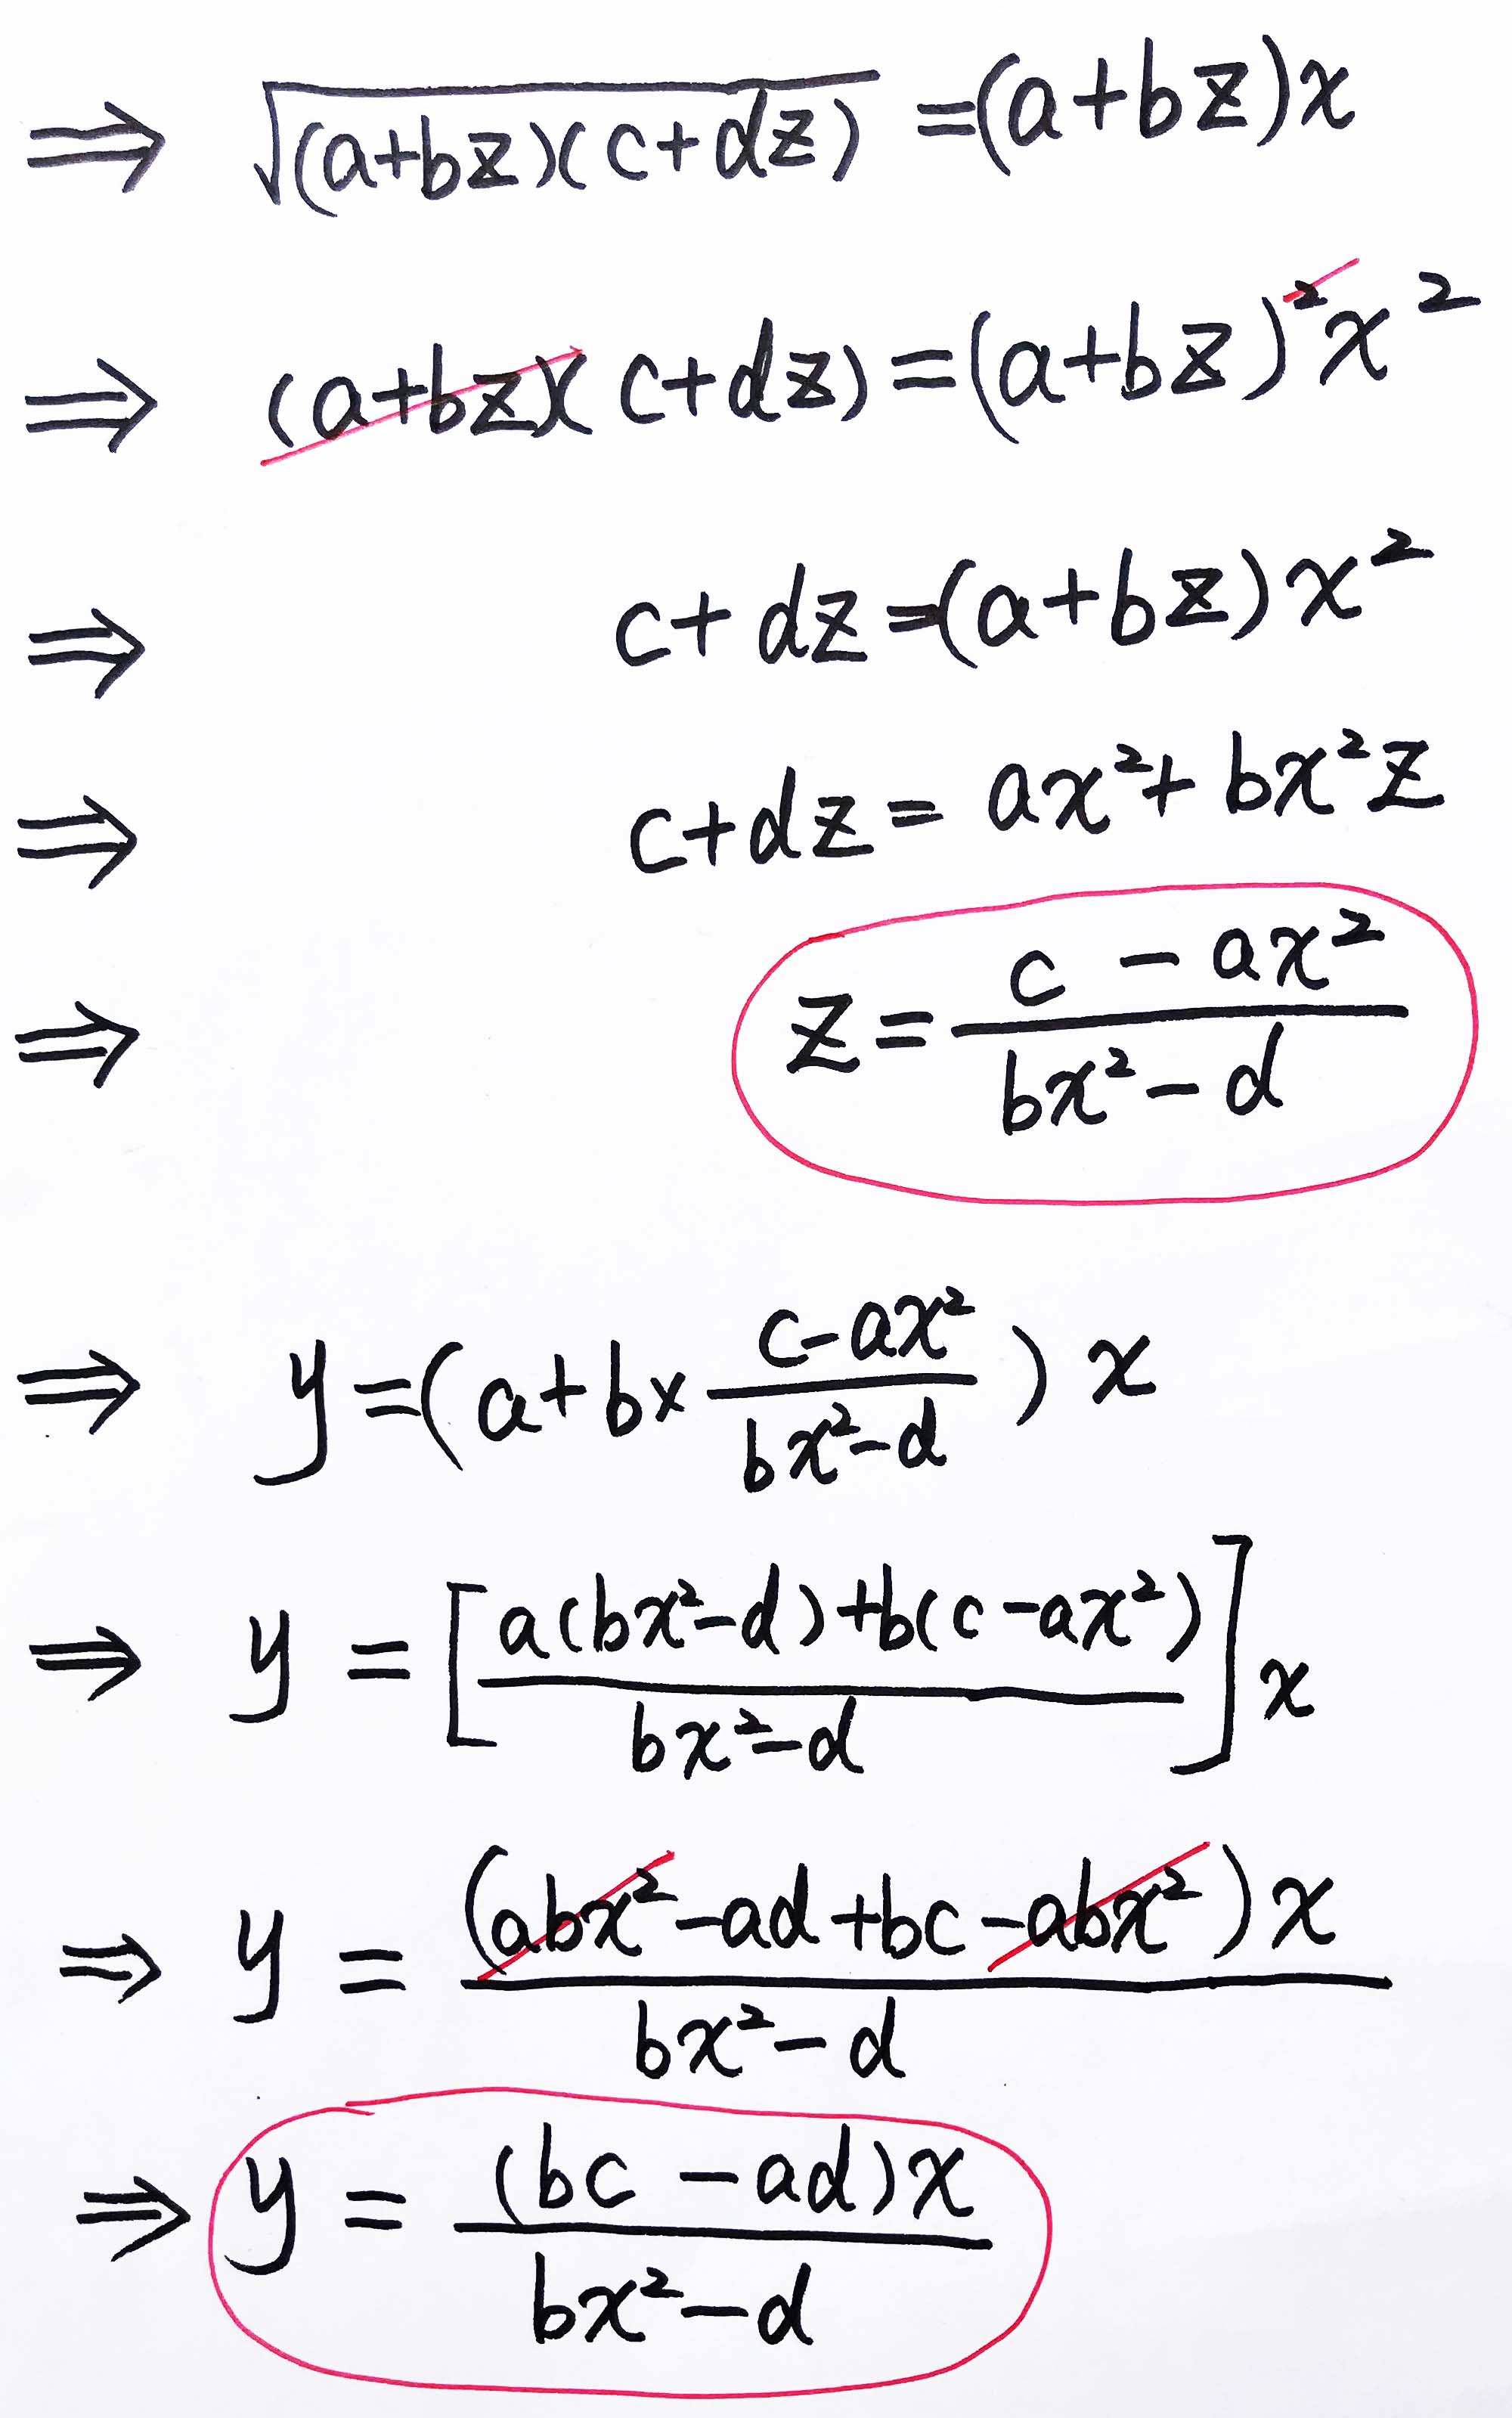 ⇒ √((a+bz)(c+dz)) =(a+bz)x
⇒ (a+bz)(c+dz)=(a+bz)²x²
⇒ c+dz=(a+bz)x²
⇒ c+dz= ax²+bx²z
⇒ z= (c-ax²)/(bx²-d)
⇒ y=(a+b× (c-ax²)/(bx²-d)) x
⇒ y = [(a(bx²-d)+b(c-ax²))/(bx²-d)]x
⇒ y = ((abx²-ad+bc-abx²)x)/(bx²-d)
⇒ y = ((bc-ad)x)/(bx²-d)